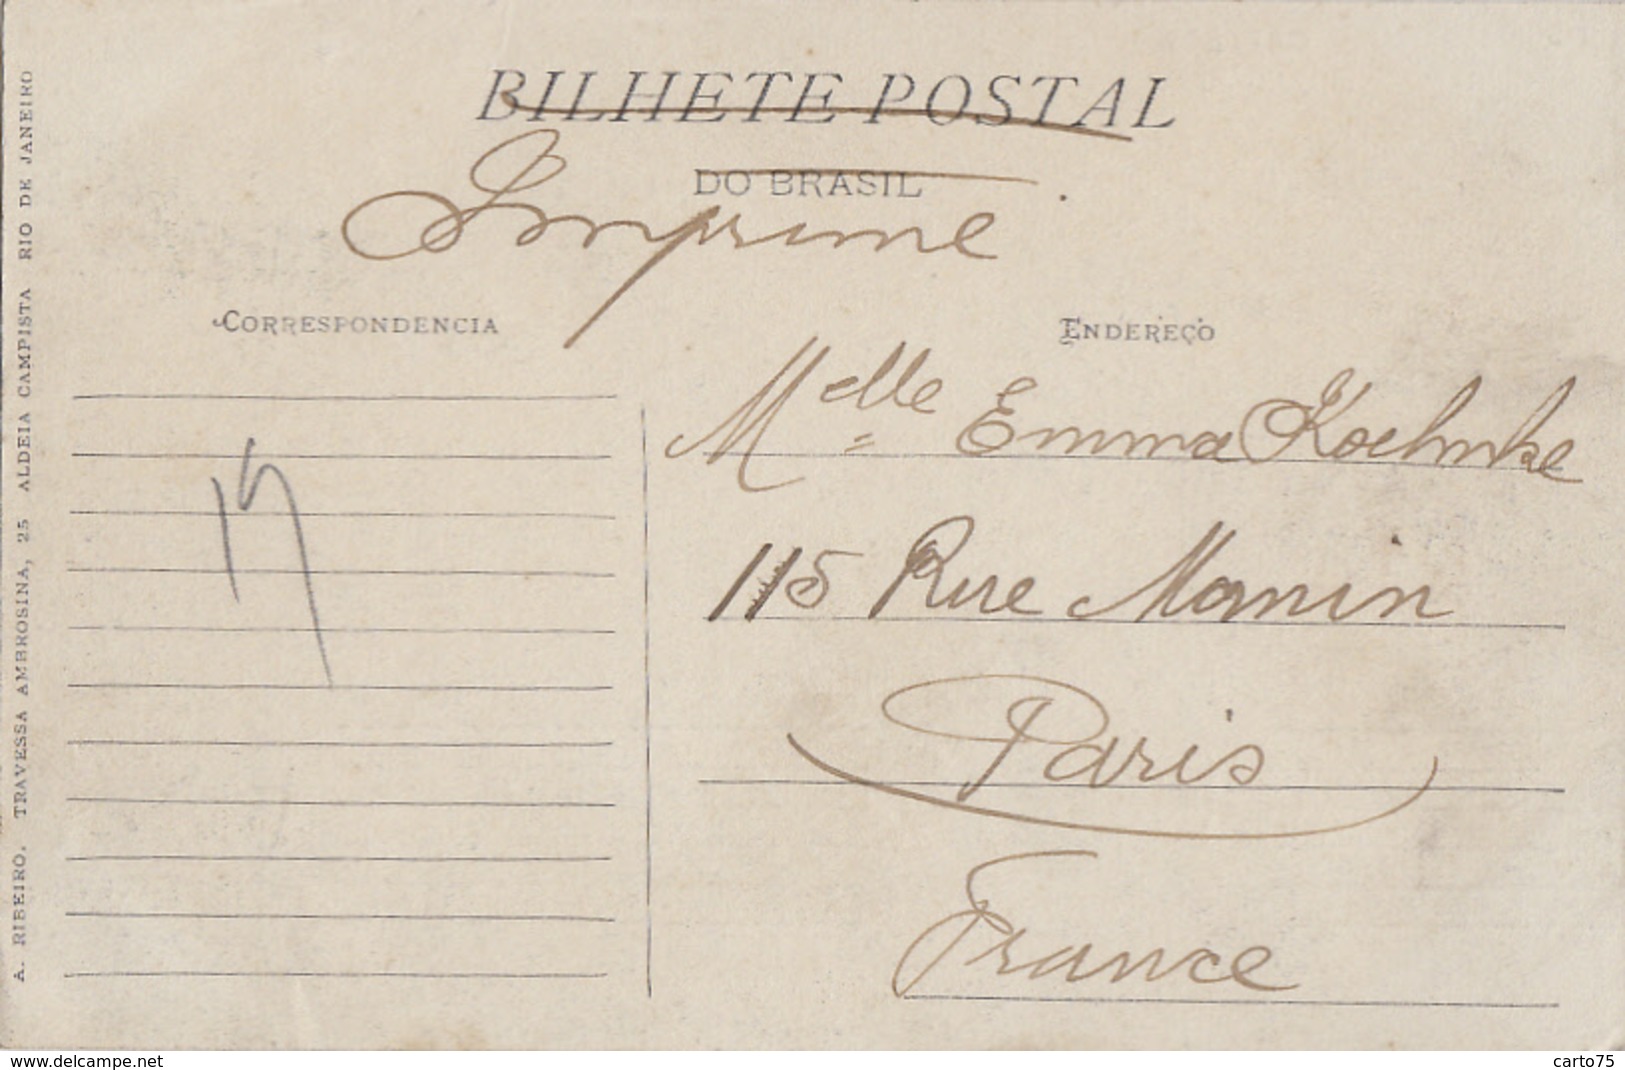 BILHETE POSTAL
DO BRASIL
Imprimé
CORRESPONDENCIA
ENDEREÇO
Melle Emma Koehnke
115 Rue Manin
Paris
France
A. RIBEIRO. TRAVESSA AMBROSINA, 25 ALDEIA CAMPISTA RIO DE JANEIRO
www.delcampe.net
carto75